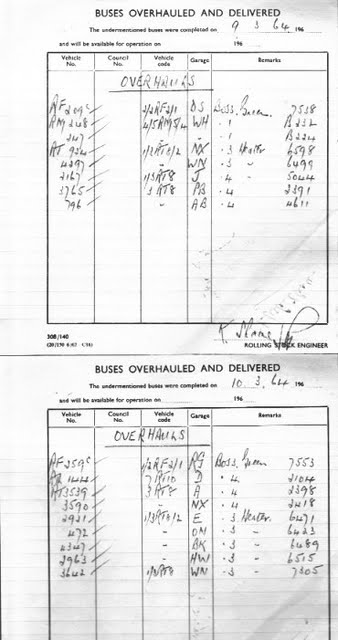 BUSES OVERHAULED AND DELIVERED
The undermentioned buses were completed on 9 3 64 196
and will be available for operation on 196
Vehicle No. Council No. Vehicle code Garage Remarks
OVERHAULS
RF 289c 2/2RF2/1 DS Boss. Green 7538
RM 248 4/5RM5/4 WH . 1 B232
347 " " . 1 B224
RT 924 1/3RT8/2 NX . 3 Heater 6598
4297 " WN . 3 " 6499
2167 1/3RT8 J . 4 5044
3765 3RT8 PB . 4 2391
796 " AB . 4 4611
308/140
ROLLING STOCK ENGINEER
BUSES OVERHAULED AND DELIVERED
The undermentioned buses were completed on 10 . 3 . 64 196
and will be available for operation on 196
Vehicle No. Council No. Vehicle code Garage Remarks
OVERHAULS
RF 259c 1/2RF2/1 RG Boss. Green 7553
144 7 10 D . 4 2104
RT3539 3RT8 A . 4 2398
3590 " NX . 4 2418
2921 1/3RT8/2 E . 3 Heater. 6471
472 " " . 3 " 6423
4347 " BK . 3 " 6489
2963 " HW . 3 " 6515
3642 1/3RT8 WN . 3 " 7305